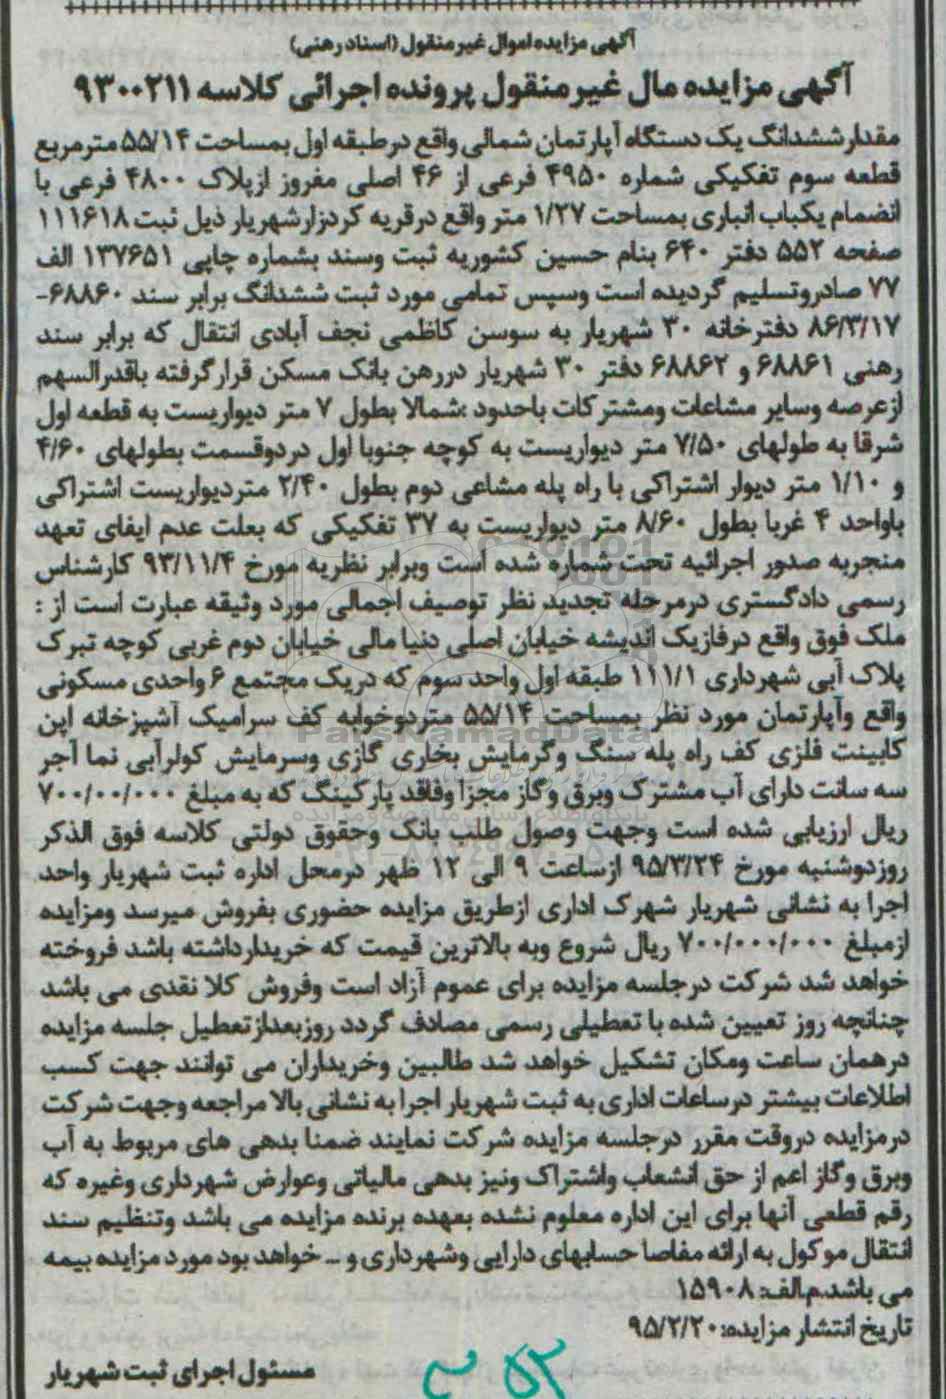 آگهی مزایده اموال غیرمنقول (اسناد رهنی)
آگهی مزایده مال غیرمنقول پرونده اجرائی کلاسه ۹۳۰۰۲۱۱
مقدار ششدانگ یک دستگاه آپارتمان شمالی واقع درطبقه اول بمساحت ۵۵/۱۴ مترمربع
قطعه سوم تفکیکی شماره ۴۹۵۰ فرعی از ۴۶ اصلی مفروز ازپلاک ۴۸۰۰ فرعی با
انضمام یکباب انباری بمساحت ۱/۲۷ متر واقع درقریه کردزارشهریار ذیل ثبت ۱۱۱۶۱۸
صفحه ۵۵۲ دفتر ۶۴۰ بنام حسین کشوریه ثبت وسند بشماره چاپی ۱۳۷۶۵۱ الف
۷۷ صادروتسلیم گردیده است وسپس تمامی مورد ثبت ششدانگ برابر سند ۶۸۸۶۰-
۸۶/۳/۱۷ دفترخانه ۳۰ شهریار به سوسن کاظمی نجف آبادی انتقال که برابر سند
رهنی ۶۸۸۶۱ و ۶۸۸۶۲ دفتر ۳۰ شهریار دررهن بانک مسکن قرارگرفته باقدرالسهم
ازعرصه وسایر مشاعات ومشترکات باحدود :شمالا بطول ۷ متر دیواریست به قطعه اول
شرقا به طولهای ۷/۵۰ متر دیواریست به کوچه جنوبا اول دردوقسمت بطولهای ۴/۶۰
و ۱/۱۰ متر دیوار اشتراکی با راه پله مشاعی دوم بطول ۲/۴۰ متردیواریست اشتراکی
باواحد ۴ غربا بطول ۸/۶۰ متر دیواریست به ۳۷ تفکیکی که بعلت عدم ایفای تعهد
منجربه صدور اجرائیه تحت شماره شده است وبرابر نظریه مورخ ۹۳/۱۱/۴ کارشناس
رسمی دادگستری درمرحله تجدید نظر توصیف اجمالی مورد وثیقه عبارت است از :
ملک فوق واقع درفازیک اندیشه خیابان اصلی دنیا مالی خیابان دوم غربی کوچه تبرک
پلاک آبی شهرداری ۱۱۱/۱ طبقه اول واحد سوم که دریک مجتمع ۶ واحدی مسکونی
واقع وآپارتمان مورد نظر بمساحت ۵۵/۱۴ متردوخوابه کف سرامیک آشپزخانه اپن
کابینت فلزی کف راه پله سنگ وگرمایش بخاری گازی وسرمایش کولرآبی نما آجر
سه سانت دارای آب مشترک وبرق وگاز مجزا وفاقد پارکینگ که به مبلغ ۷۰۰/۰۰/۰۰۰
ریال ارزیابی شده است وجهت وصول طلب بانک وحقوق دولتی کلاسه فوق الذکر
روزدوشنبه مورخ ۹۵/۳/۲۴ ازساعت ۹ الی ۱۲ ظهر درمحل اداره ثبت شهریار واحد
اجرا به نشانی شهریار شهرک اداری ازطریق مزایده حضوری بفروش میرسد ومزایده
ازمبلغ ۷۰۰/۰۰۰/۰۰۰ ریال شروع وبه بالاترین قیمت که خریدارداشته باشد فروخته
خواهد شد شرکت درجلسه مزایده برای عموم آزاد است وفروش کلا نقدی می باشد
چنانچه روز تعیین شده با تعطیلی رسمی مصادف گردد روزبعدازتعطیل جلسه مزایده
درهمان ساعت ومکان تشکیل خواهد شد طالبین وخریداران می توانند جهت کسب
اطلاعات بیشتر درساعات اداری به ثبت شهریار اجرا به نشانی بالا مراجعه وجهت شرکت
درمزایده دروقت مقرر درجلسه مزایده شرکت نمایند ضمنا بدهی های مربوط به آب
وبرق وگاز اعم از حق انشعاب واشتراک ونیز بدهی مالیاتی وعوارض شهرداری وغیره که
رقم قطعی آنها برای این اداره معلوم نشده بعهده برنده مزایده می باشد وتنظیم سند
انتقال موکول به ارائه مفاصا حسابهای دارایی وشهرداری و ... خواهد بود مورد مزایده بیمه
می باشد.م.الف: ۱۵۹۰۸
تاریخ انتشار مزایده: ۹۵/۲/۲۰
مسئول اجرای ثبت شهریار
ParsNamadData